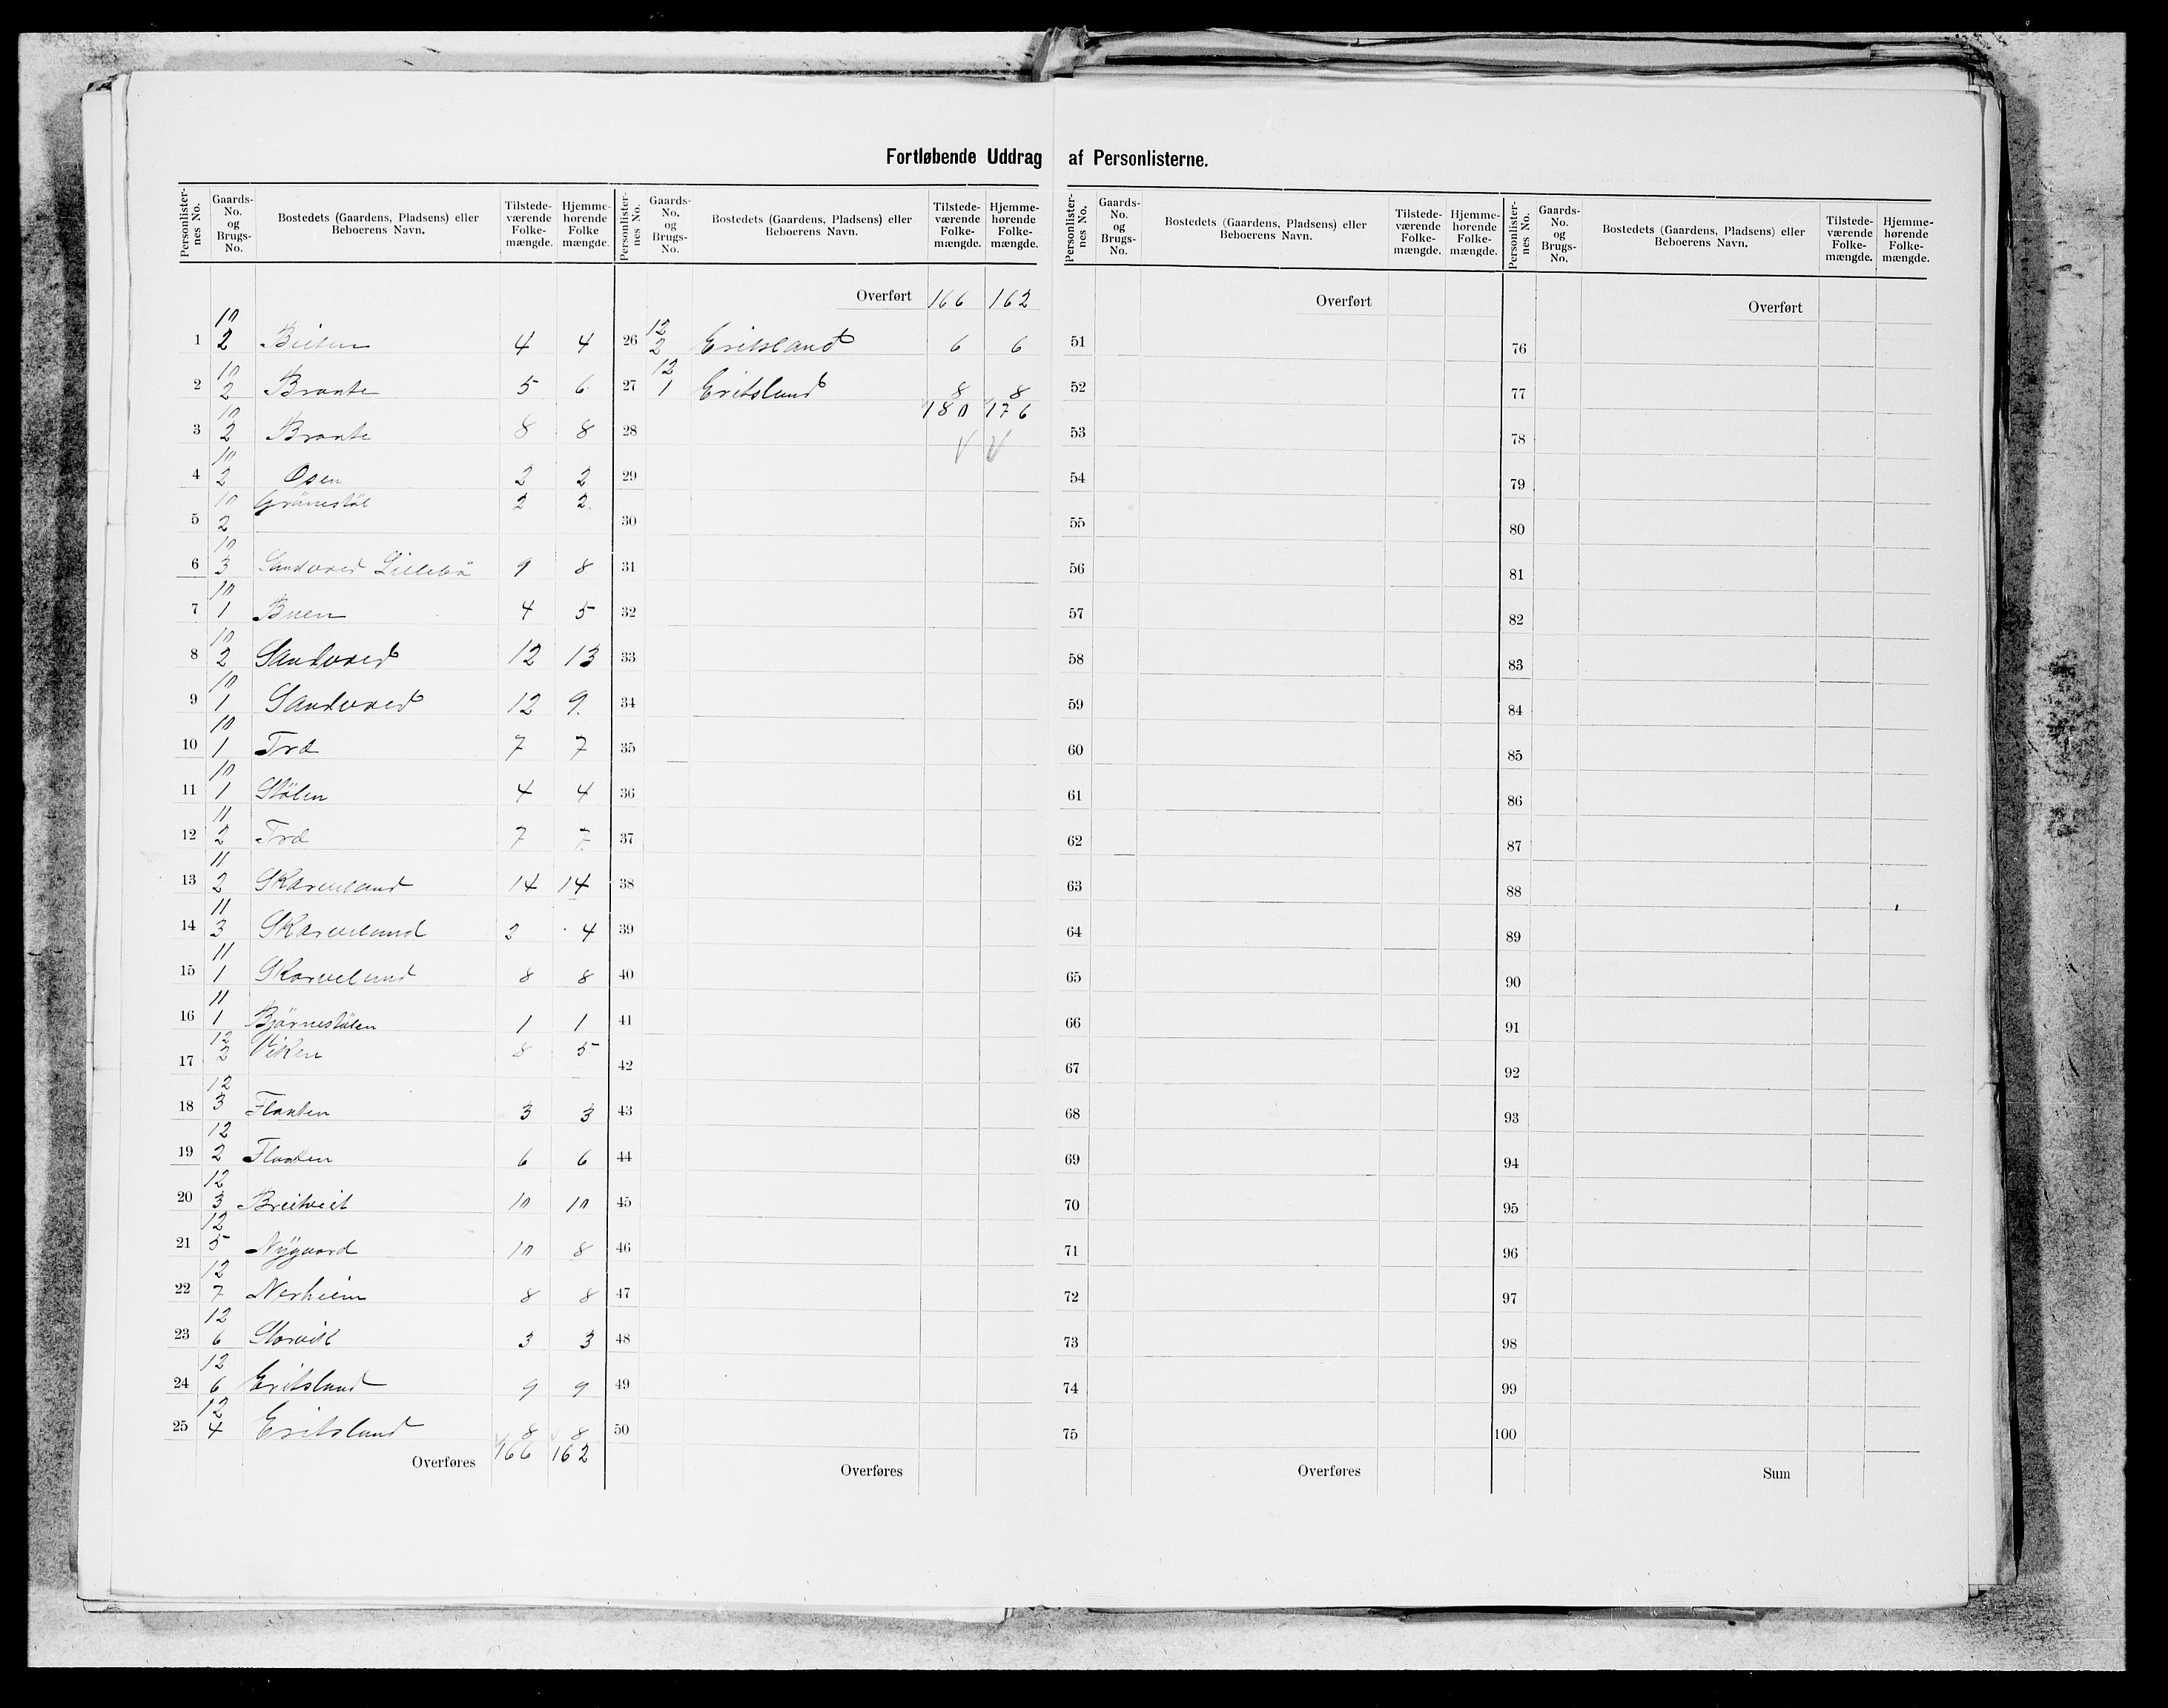 Fortløbende Uddrag af Personlisterne.
Personlister-nes No. | Gaards-No. og Brugs-No. | Bostedets (Gaardens, Pladsens) eller Beboerens Navn. | Tilstede-værende Folke-mængde. | Hjemme-hørende Folke mængde.
1 | 10 2 | | 4 | 4
2 | 10 2 | Braate | 5 | 6
3 | 10 2 | Braate | 8 | 8
4 | 10 2 | Osen | 2 | 2
5 | 10 2 | Grönestöl | 2 | 2
6 | 10 3 | Sandvned Lillebö | 9 | 8
7 | 10 1 | Buen | 4 | 5
8 | 10 2 | Sandvned | 12 | 13
9 | 10 1 | Sandvned | 12 | 9
10 | 10 1 | Træ | 7 | 7
11 | 10 1 | Stölen | 4 | 4
12 | 11 2 | Træ | 7 | 7
13 | 11 2 | Skarveland | 14 | 14
14 | 11 3 | Skarveland | 2 | 4
15 | 11 1 | Skarveland | 8 | 8
16 | 11 1 | Björnestölen | 1 | 1
17 | 12 2 | Viken | 8 | 5
18 | 12 3 | Flaaten | 3 | 3
19 | 12 2 | Flaaten | 6 | 6
20 | 12 3 | Breitveit | 10 | 10
21 | 12 5 | Nygaard | 10 | 8
22 | 12 7 | Nerheim | 8 | 8
23 | 12 6 | Storvik | 3 | 3
24 | 12 6 | Eritsland | 9 | 9
25 | 12 4 | Eritsland | 8 | 8
Overføres 166 | 162
Personlister-nes No. | Gaards-No. og Brugs-No. | Bostedets (Gaardens, Pladsens) eller Beboerens Navn. | Tilstede-værende Folke-mængde. | Hjemme-hørende Folke-mængde.
Overført 166 | 162
26 | 12 2 | Eritsland | 6 | 6
27 | 12 1 | Eritsland | 8 | 8
180 | 176
28
29
30
31
32
33
34
35
36
37
38
39
40
41
42
43
44
45
46
47
48
49
50
Overføres
Personlister-nes No. | Gaards-No. og Brugs-No. | Bostedets (Gaardens, Pladsens) eller Beboerens Navn. | Tilstede-værende Folke-mængde. | Hjemme-hørende Folke-mængde.
Overført
51
52
53
54
55
56
57
58
59
60
61
62
63
64
65
66
67
68
69
70
71
72
73
74
75
Overføres
Personlister-nes No. | Gaards-No. og Brugs-No. | Bostedets (Gaardens, Pladsens) eller Beboerens Navn. | Tilstede-værende Folke-mængde. | Hjemme-hørende Folke-mængde.
Overført
76
77
78
79
80
81
82
83
84
85
86
87
88
89
90
91
92
93
94
95
96
97
98
99
100
Sum